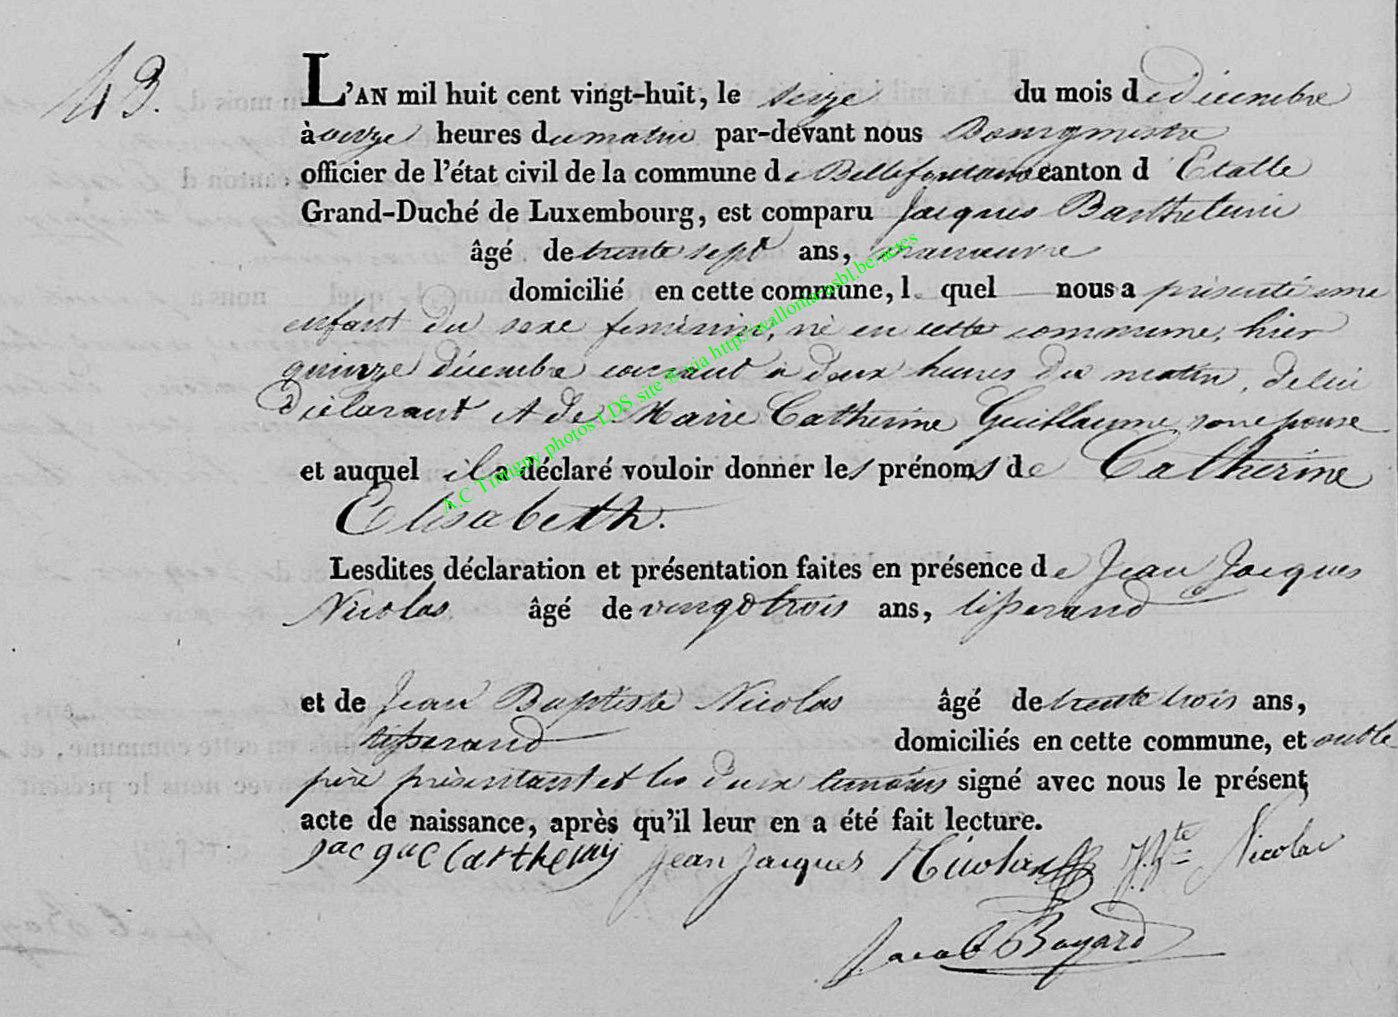 43.
L'AN mil huit cent vingt-huit, le seize du mois de décembre
à onze heures du matin par-devant nous Bourgmestre
officier de l'état civil de la commune de Bellefontaine canton d'Etalle
Grand-Duché de Luxembourg, est comparu Jacques Barthelemi
âgé de trente sept ans, manœuvre
domicilié en cette commune, lequel nous a présenté une
enfant du sexe féminin, né en cette commune, hier
quinze décembre courant à deux heures du matin, de lui
déclarant et de Marie Catherine Guillaume son epouse
et auquel il a déclaré vouloir donner les prénoms de Catherine
Elisabeth.
Lesdites déclaration et présentation faites en présence de Jean Jacques
Nicolas âgé de vingt trois ans, tisserand
et de Jean Baptiste Nicolas âgé de trente trois ans,
tisserand domiciliés en cette commune, et ont le
père présentant et les deux temoins signé avec nous le présent
acte de naissance, après qu'il leur en a été fait lecture.
Jean Jacques Nicolas J. Bte Nicolas
Jacob Bayard
A.C Tintigny photos LDS site Ionia http://wallonia-asbl.be/actes